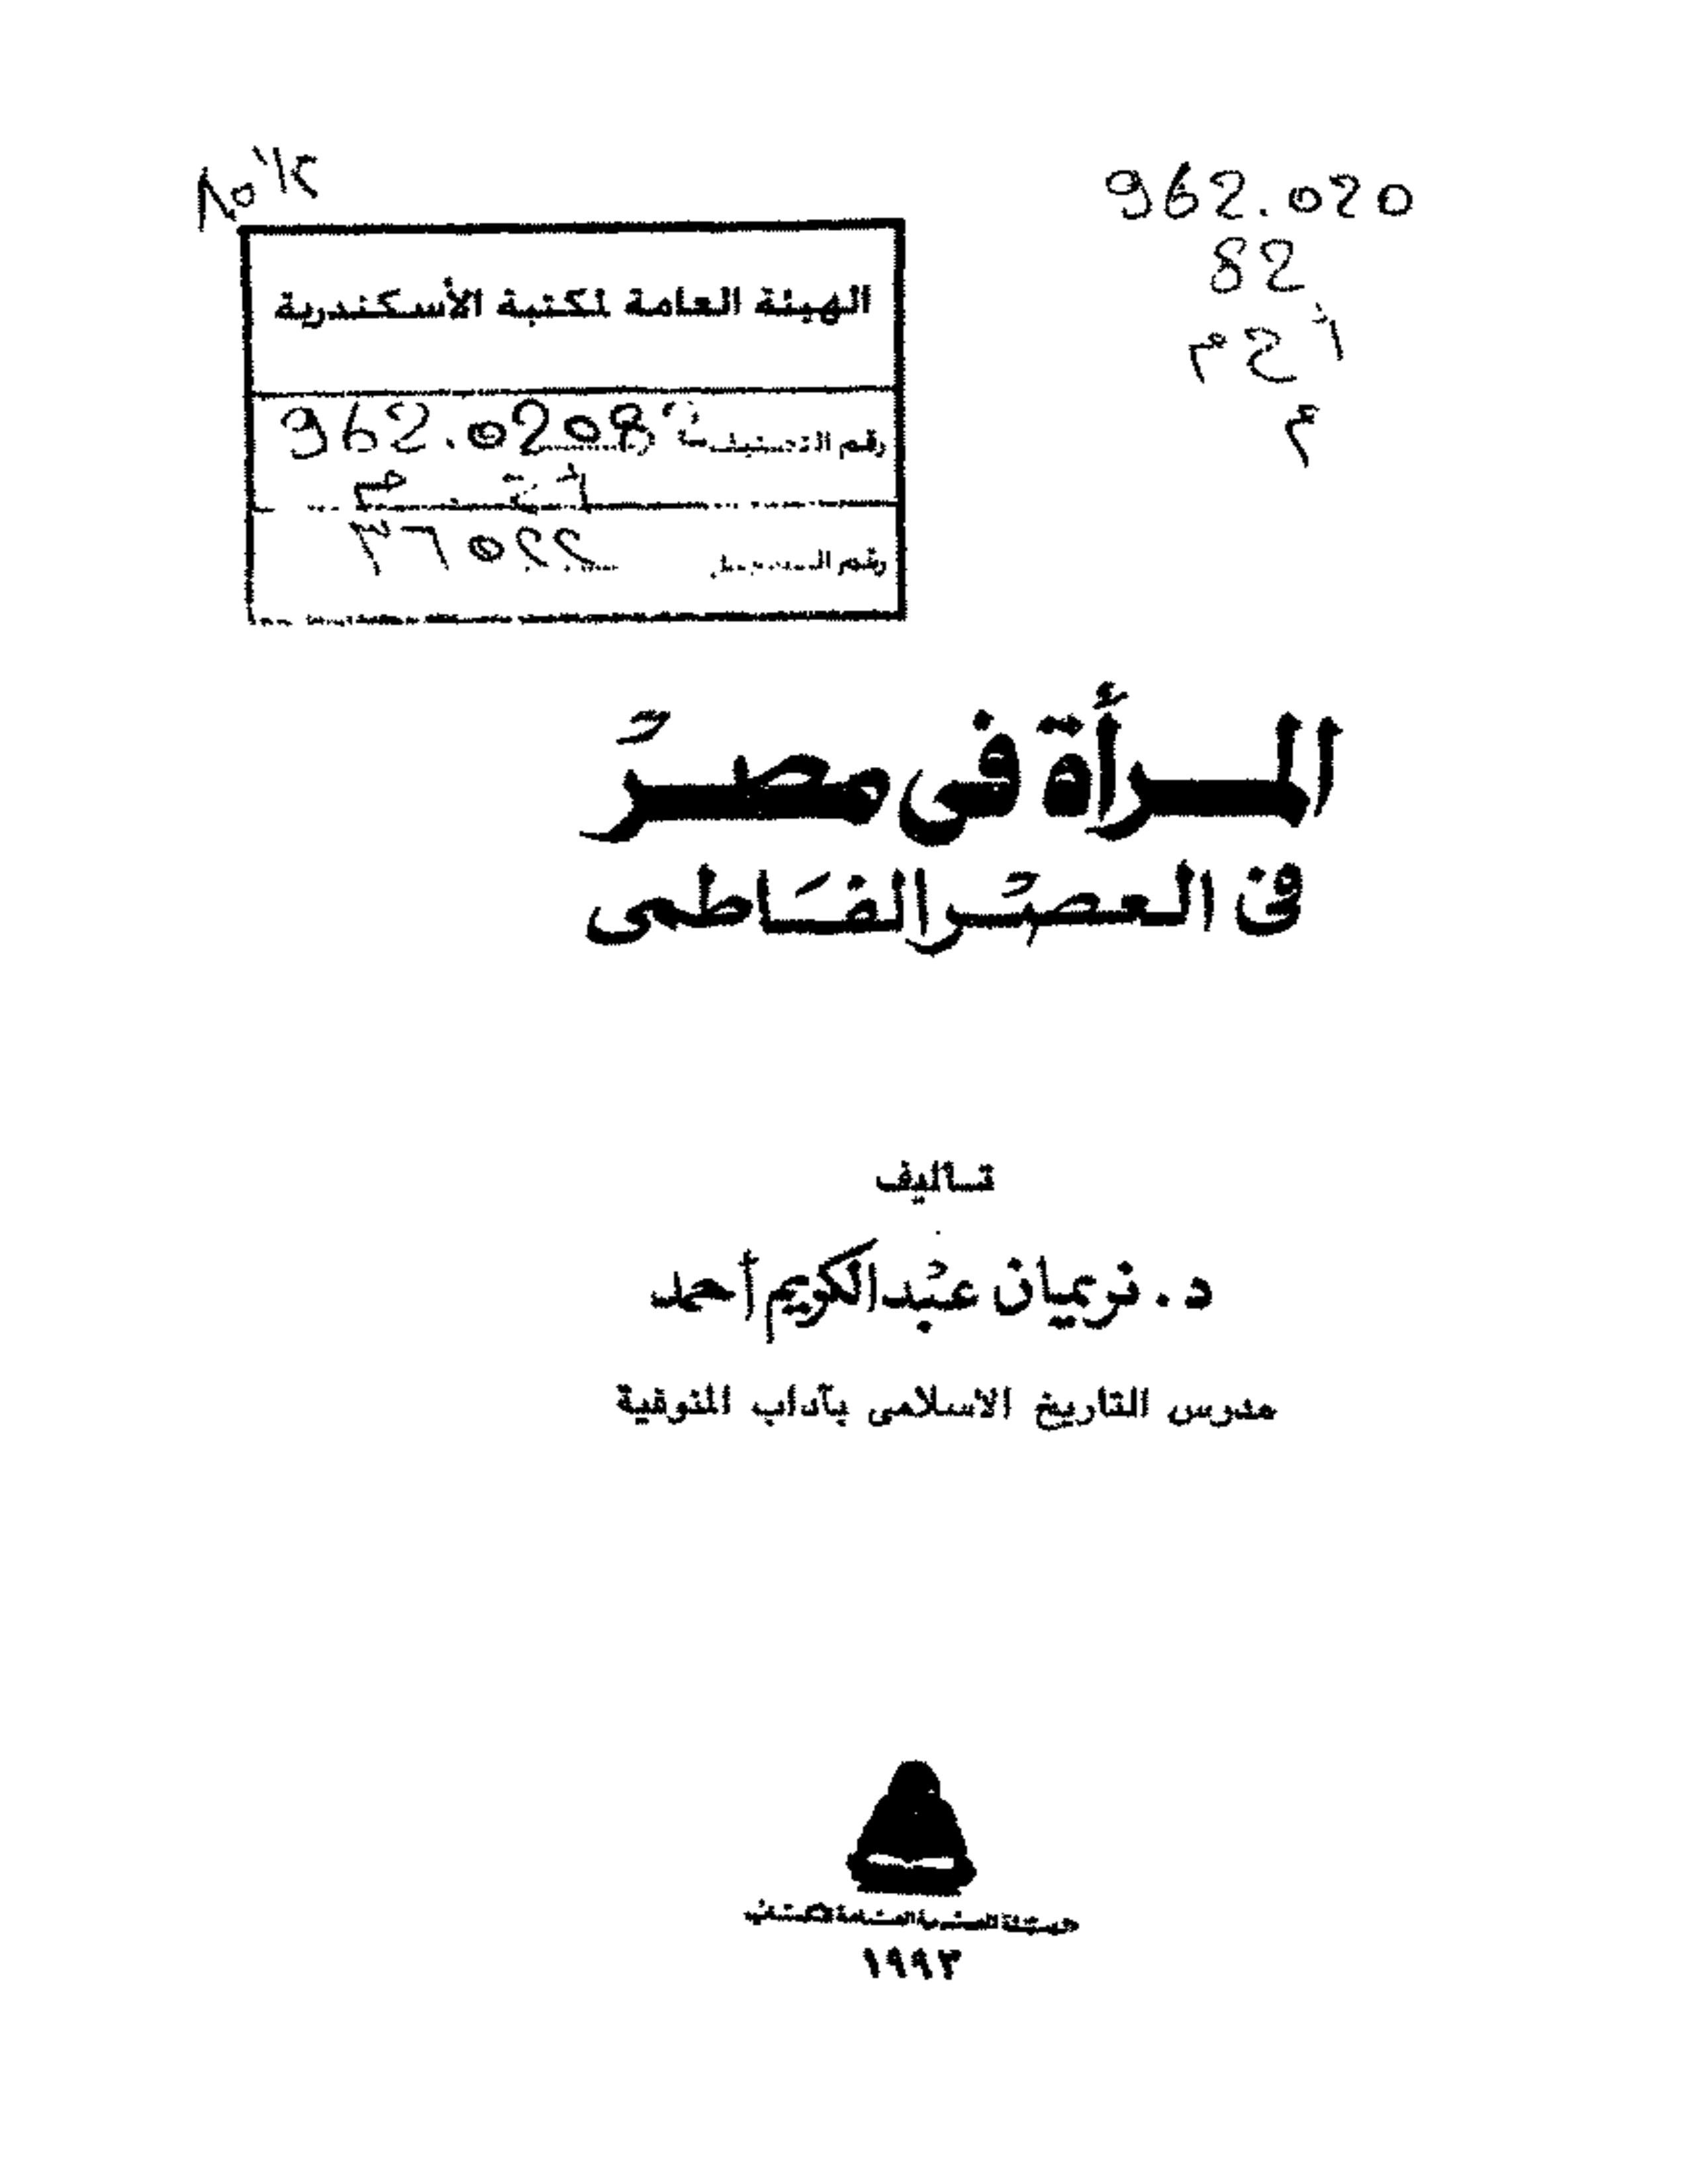 962.020
82
الهيئة العامة لمكتبة الأسكندرية
رقم التصنيف 962.02082
رقم التسجيل ٣٦٥٢٢
المرأة فى مصر
فى العصر الفاطمى
تأليف
د. نريمان عبد الكريم أحمد
مدرس التاريخ الاسلامى بآداب المنوفية
الهيئة المصرية العامة للكتاب
١٩٩٣